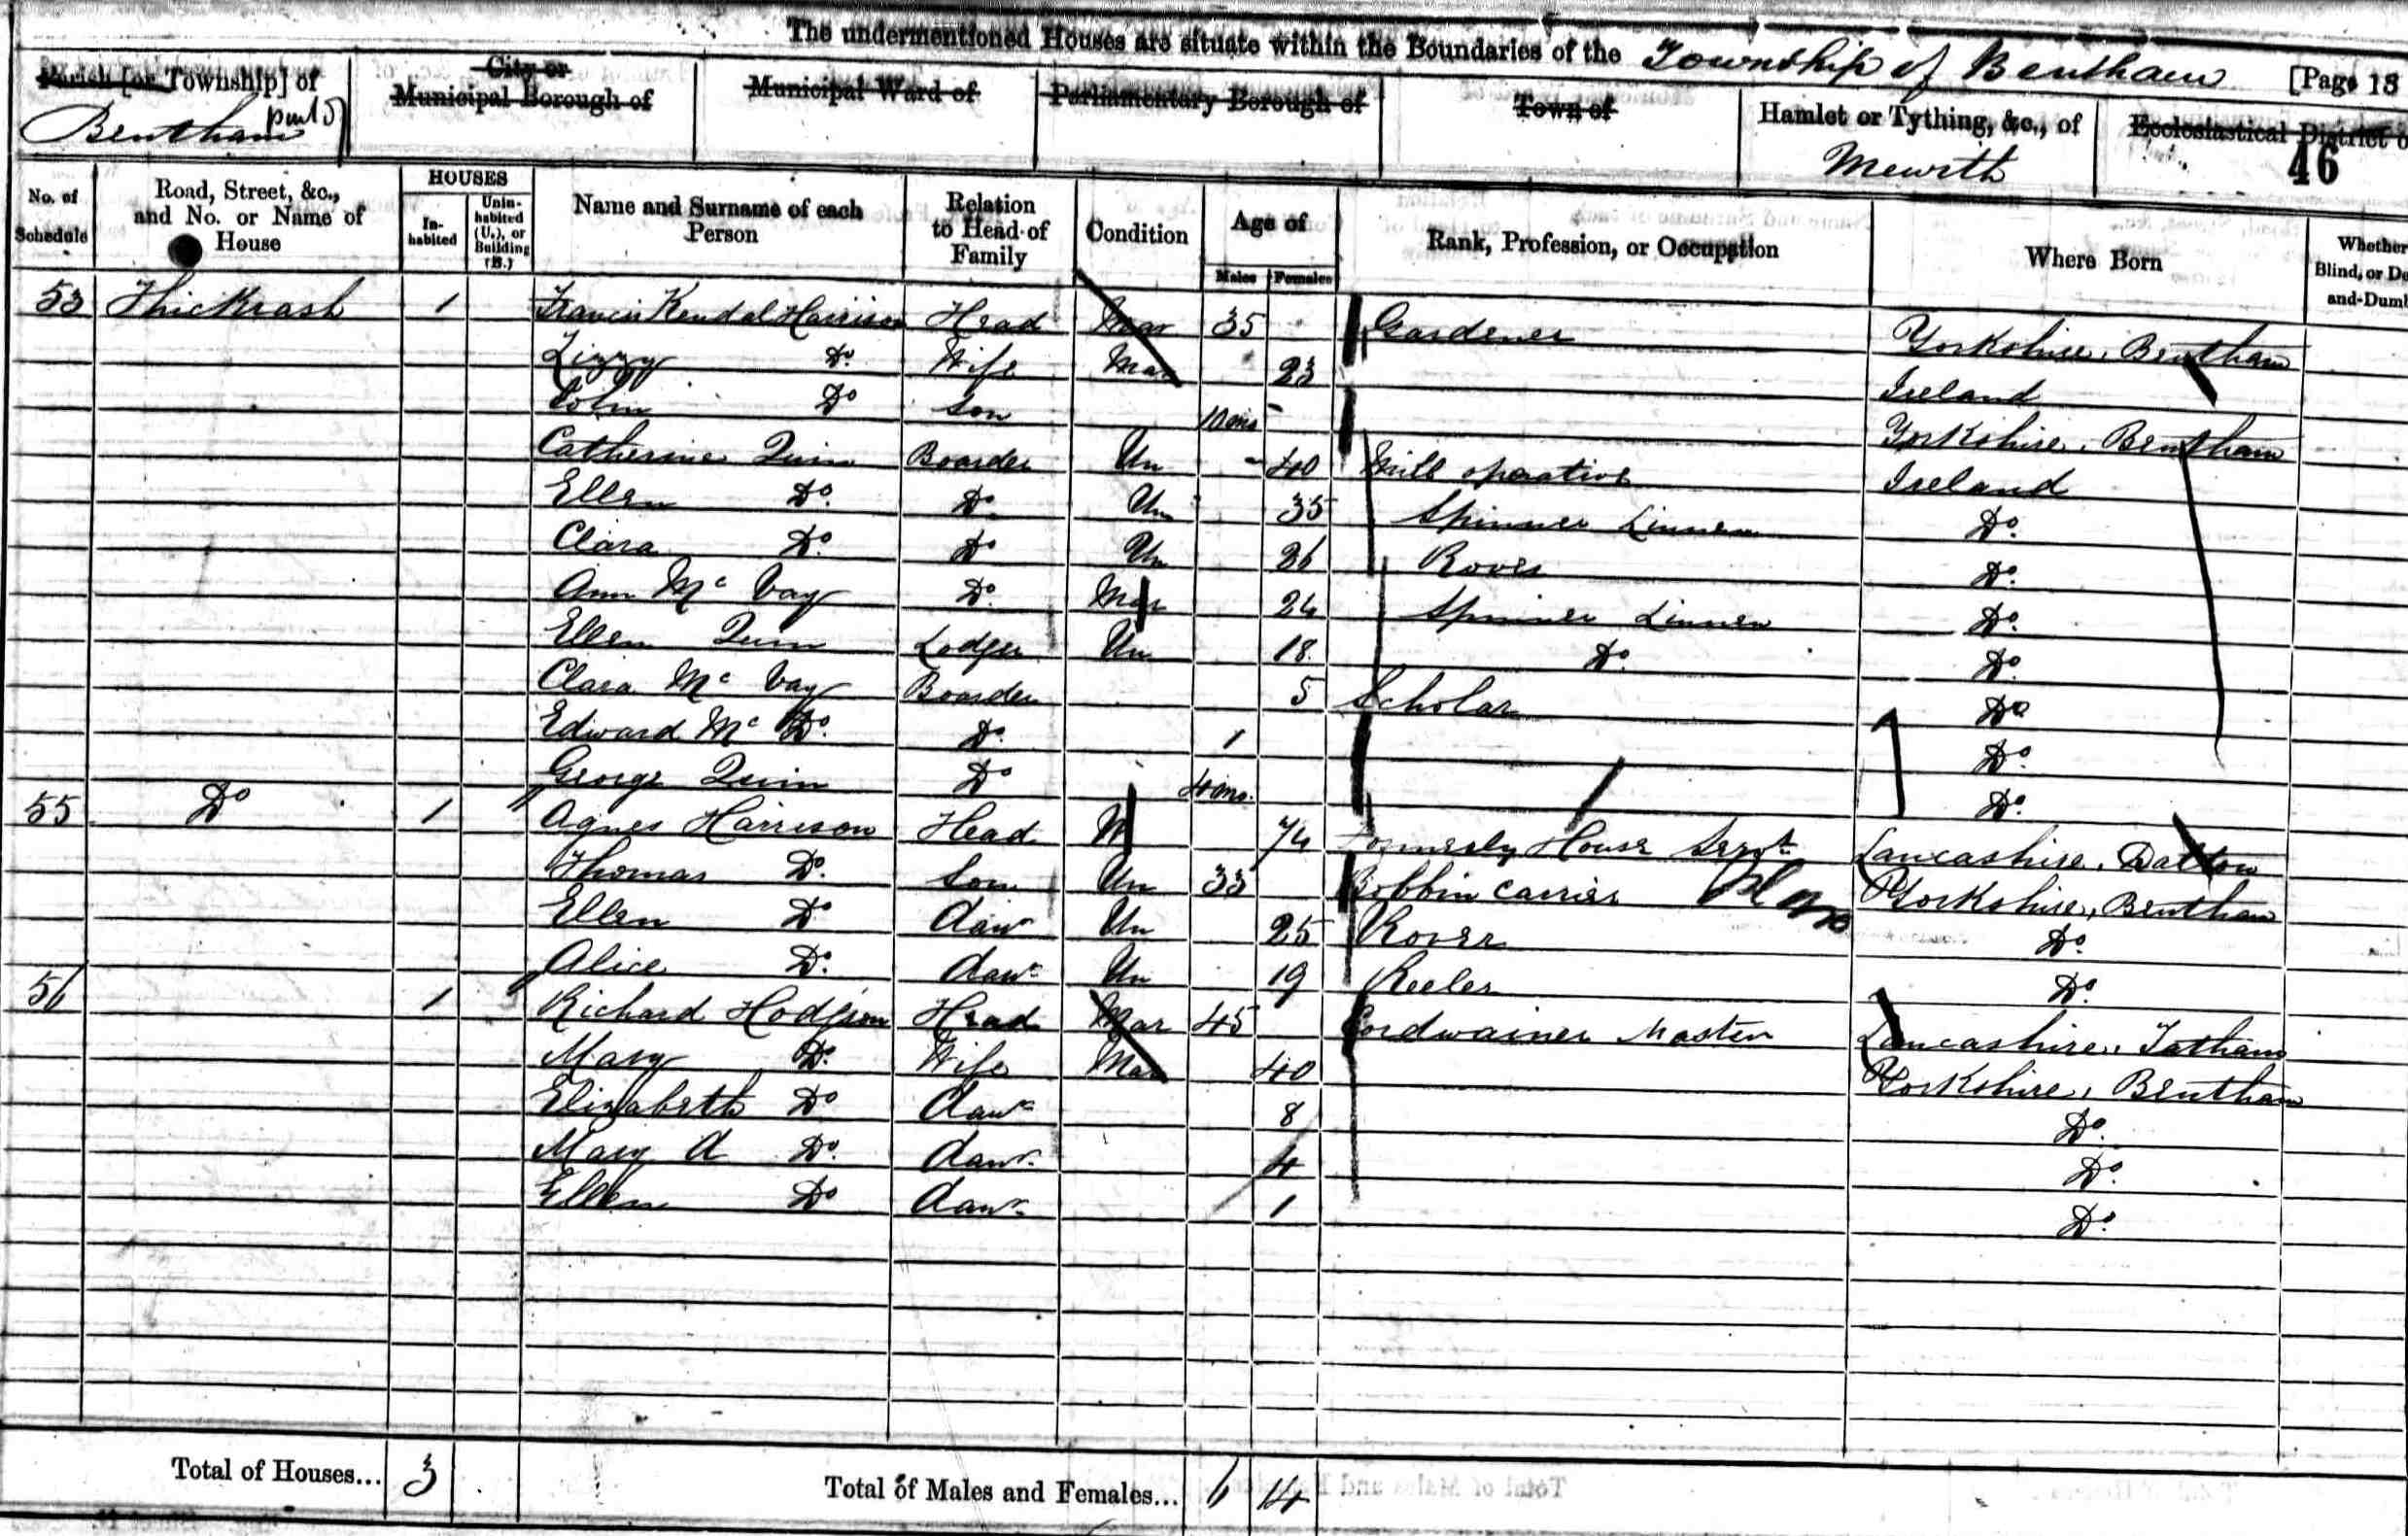 The undermentioned Houses are situate within the Boundaries of the Township of Bentham [Page 18
Parish [or Township] of City or Municipal Borough of Municipal Ward of Parliamentary Borough of Town of Hamlet or Tything, &c., of Ecclesiastical District o
Bentham part 5 Mewith 46
No. of Schedule Road, Street, &c., and No. or Name of House HOUSES In-habited Unin-habited (U.), or Building (B.) Name and Surname of each Person Relation to Head of Family Condition Age of Males Females Rank, Profession, or Occupation Where Born Whether Blind, or De and-Dumb
53 Thickrash 1 Francis Kendal Harrison Head Mar 35 Gardener Yorkshire, Bentham
Lizzy Do. Wife Mar 23 Ireland
John Do Son 10 mo Yorkshire, Bentham
Catherine Quin Boarder Un 40 Mill operative Ireland
Ellen Do. Do. Un 35 Spinner Linnen Do.
Clara Do. Do Un 26 Rover Do.
Ann Mc Vay Do. Mar 24 Spinner Linnen Do.
Ellen Quin Lodger Un 18 Do. Do.
Clara Mc Vay Boarder 5 Scholar Do
Edward Mc Do. Do. 1 Do.
George Quin Do 4 mo. Do.
55 Do 1 Agnes Harrison Head W 74 Formerly House Servt Lancashire, Dalton
Thomas Do. Son Un 33 Bobbin carrier Yorkshire, Bentham
Ellen Do Dawr Un 25 Rover Do.
Alice Do. Dawr Un 19 Reeler Do.
56 1 Richard Hodgson Head Mar 45 Cordwainer Master Lancashire, Tatham
Mary Do. Wife Mar 40 Yorkshire, Bentham
Elizabeth Do Dawr 8 Do.
Mary A Do. Dawr. 4 Do.
Ellen Do Dawr 1 Do.
Total of Houses... 3 Total of Males and Females... 6 14